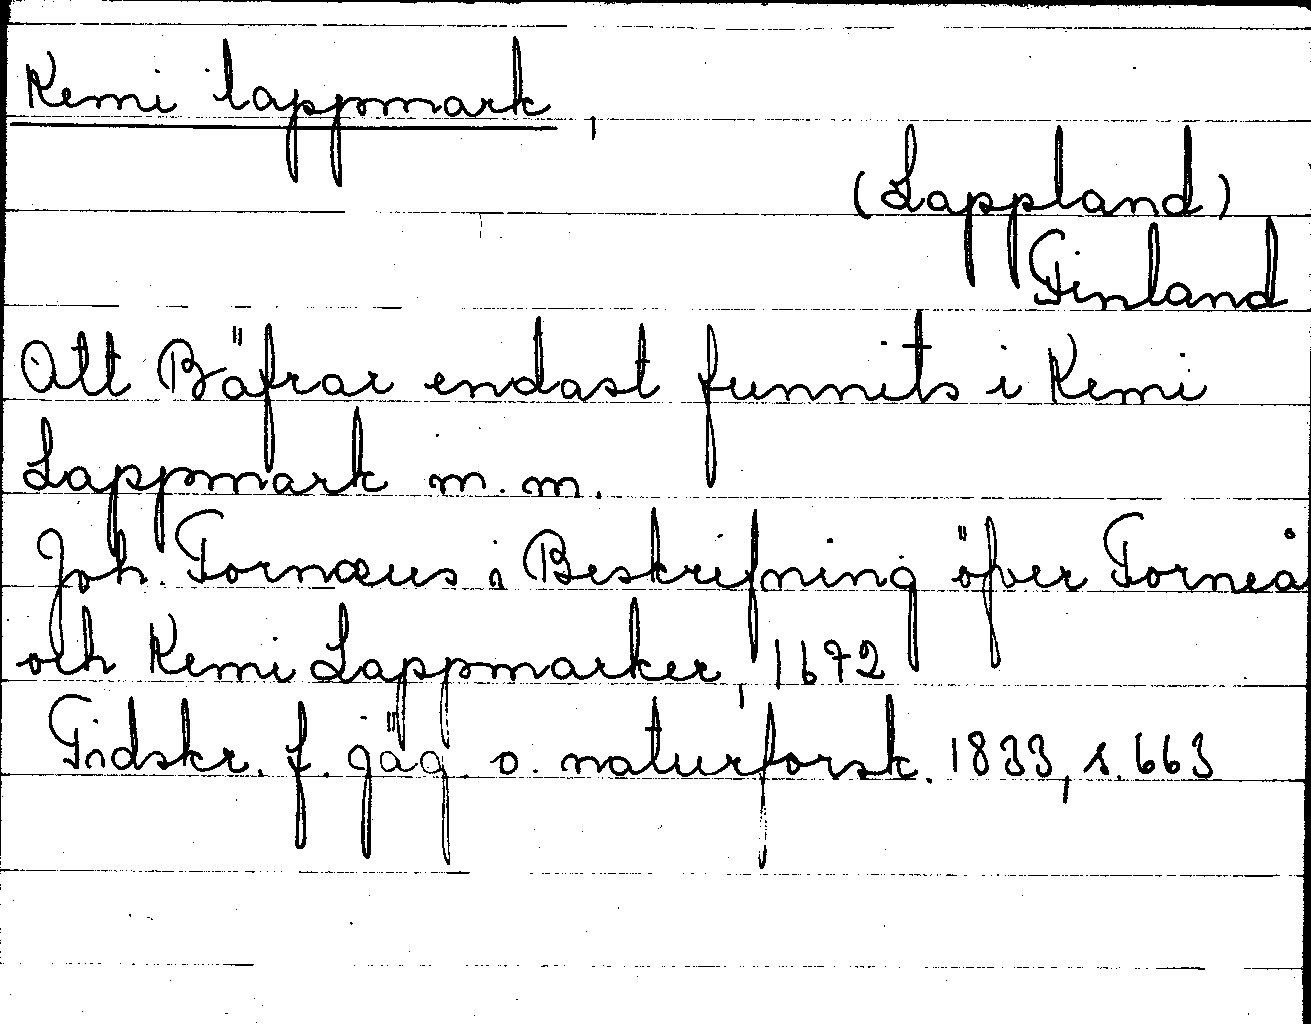 Kemi lappmark,
(Lappland)
Finland
Att Bäfrar endast funnits i Kemi
Lappmark m.m.
Joh. Tornæus i Beskrifning öfver Torneå
och Kemi Lappmarker, 1672
Tidskr. f. jäg. o. naturforsk. 1833, s. 663